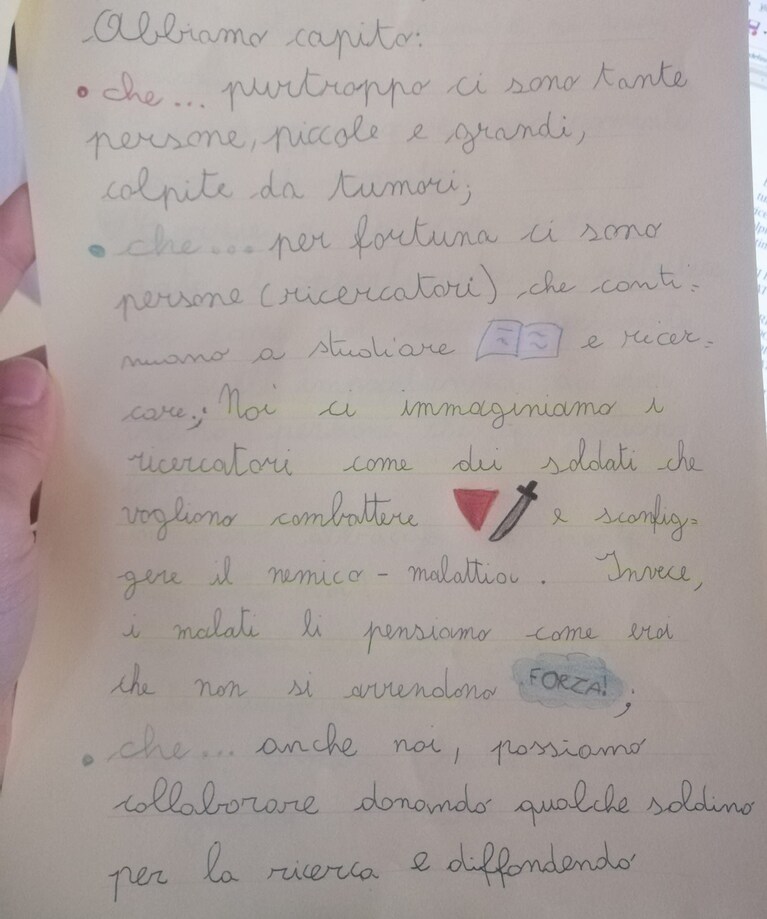 Abbiamo capito:
• che... purtroppo ci sono tante
persone, piccole e grandi,
colpite da tumori;
• che... per fortuna ci sono
persone (ricercatori) che conti=
nuano a studiare e ricer=
care; Noi ci immaginiamo i
ricercatori come dei soldati che
vogliono combattere e sconfig=
gere il nemico - malattia. Invece,
i malati li pensiamo come eroi
che non si arrendono FORZA! ;
• che... anche noi, possiamo
collaborare donando qualche soldino
per la ricerca e diffondendo